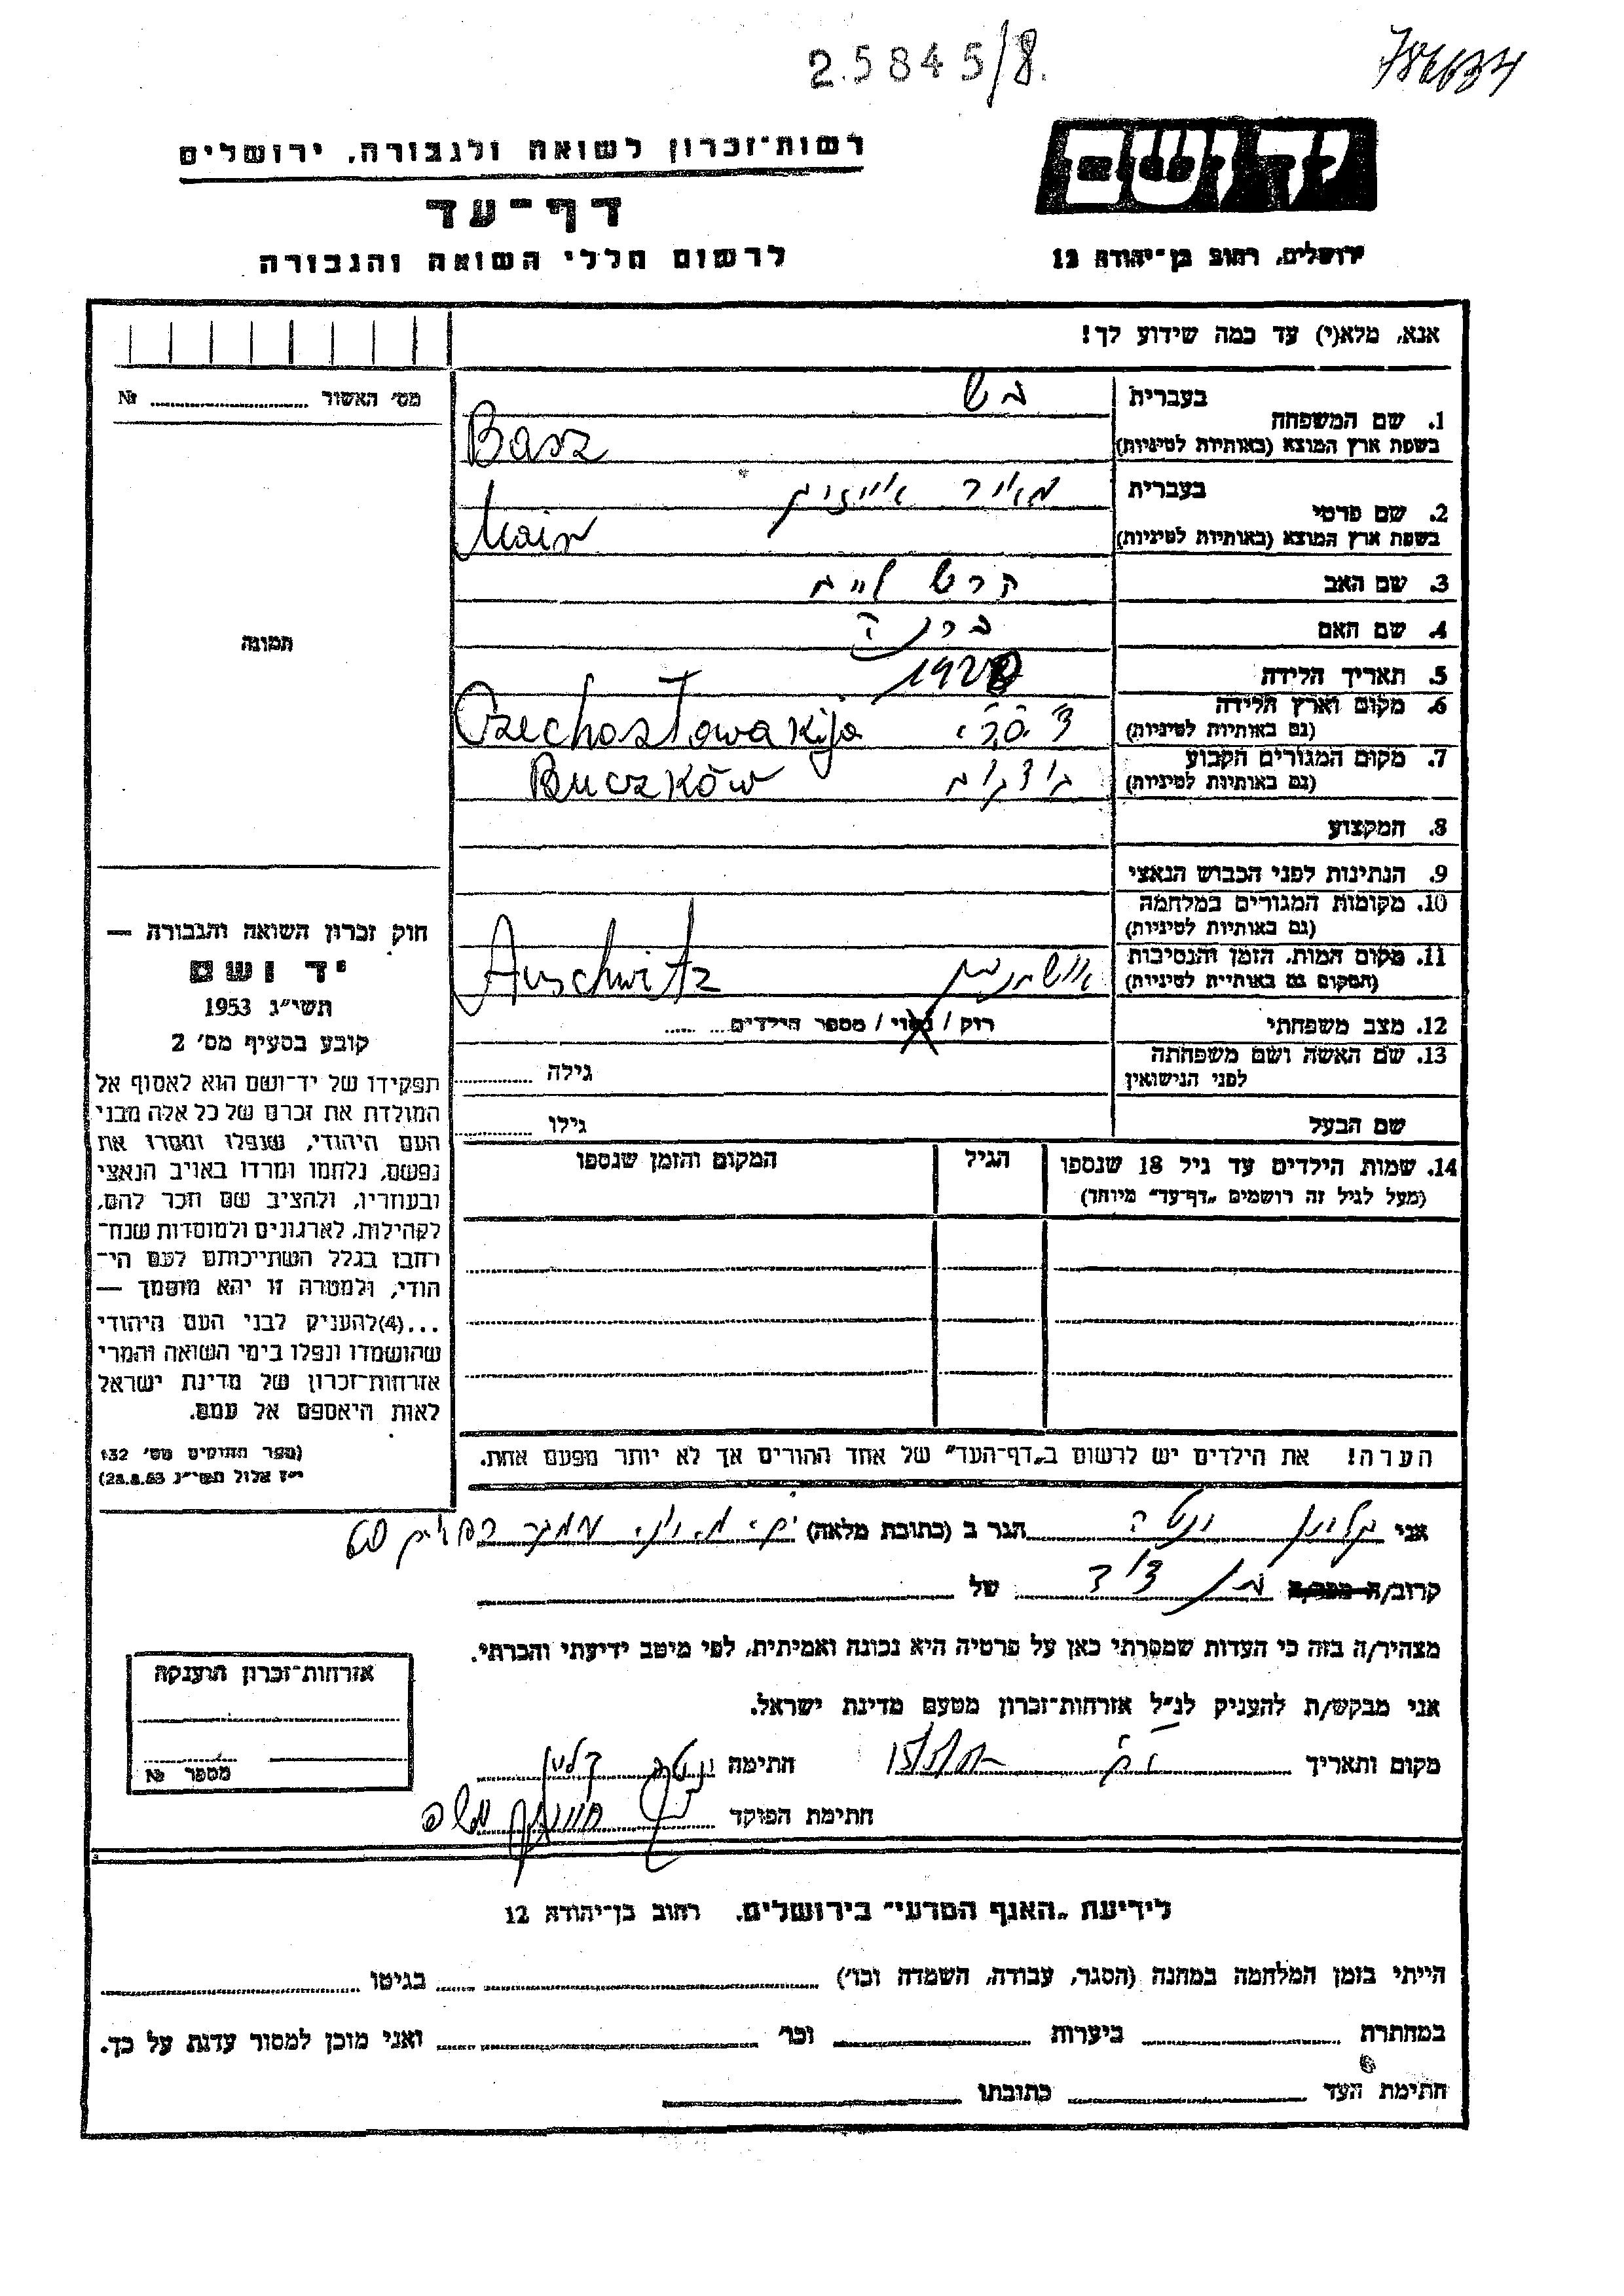 25845/8.
רשות־זכרון לשואה ולגבורה, ירושלים
יד ושם
דף־עד
לרשום חללי השואה והגבורה
ירושלים, רחוב בן־יהודה 12
אנא, מלא(י) עד כמה שידוע לך!
מס' האשור № 
בעברית בש
1. שם המשפחה
בשפת ארץ המוצא (באותיות לטיניות) Basz
בעברית מאיר
2. שם פרטי
בשפת ארץ המוצא (באותיות לטיניות) Mair
3. שם האב
4. שם האם
5. תאריך הלידה
6. מקום וארץ הלידה צ'.ס.ר.
(גם באותיות לטיניות) Czechosłowakija
7. מקום המגורים הקבוע
(גם באותיות לטיניות) Buczków
8. המקצוע
9. הנתינות לפני הכבוש הנאצי
10. מקומות המגורים במלחמה
(גם באותיות לטיניות)
11. מקום המות, הזמן והנסיבות
(המקום גם באותיות לטיניות) Auschwitz
12. מצב משפחתי רוק / נשוי / מספר הילדים
13. שם האשה ושם משפחתה גילה
לפני הנישואין
שם הבעל גילו
14. שמות הילדים עד גיל 18 שנספו הגיל המקום והזמן שנספו
(מעל לגיל זה רושמים „דף־עד" מיוחד)
הערה! את הילדים יש לרשום ב„דף־העד" של אחד ההורים אך לא יותר מפעם אחת.
תמונה
חוק זכרון השואה והגבורה —
יד ושם
תשי"ג 1953
קובע בסעיף מס' 2
תפקידו של יד־ושם הוא לאסוף אל
המולדת את זכרם של כל אלה מבני
העם היהודי, שנפלו ומסרו את
נפשם, נלחמו ומרדו באויב הנאצי
ובעוזריו, ולהציב שם וזכר להם,
לקהילות, לארגונים ולמוסדות שנח־
רבו בגלל השתייכותם לעם הי־
הודי, ולמטרה זו יהא מוסמך —
...(4)להעניק לבני העם היהודי
שהושמדו ונפלו בימי השואה והמרי
אזרחות־זכרון של מדינת ישראל
לאות היאספם אל עמם.
(ספר החוקים מס' 132
י"ז אלול תשי"ג 28.8.53)
אני הגר ב (כתובת מלאה)
קרוב/ה מכר/ה בן דוד של
מצהיר/ה בזה כי העדות שמסרתי כאן על פרטיה היא נכונה ואמיתית, לפי מיטב ידיעתי והכרתי.
אני מבקש/ת להעניק לנ"ל אזרחות־זכרון מטעם מדינת ישראל.
מקום ותאריך חתימה
חתימת הפוקד
אזרחות־זכרון הוענקה
מספר №
לידיעת „האגף המדעי" בירושלים, רחוב בן־יהודה 12
הייתי בזמן המלחמה במחנה (הסגר, עבודה, השמדה וכו') בגיטו
במחתרת ביערות וכו' ואני מוכן למסור עדות על כך.
חתימת העד כתובתו